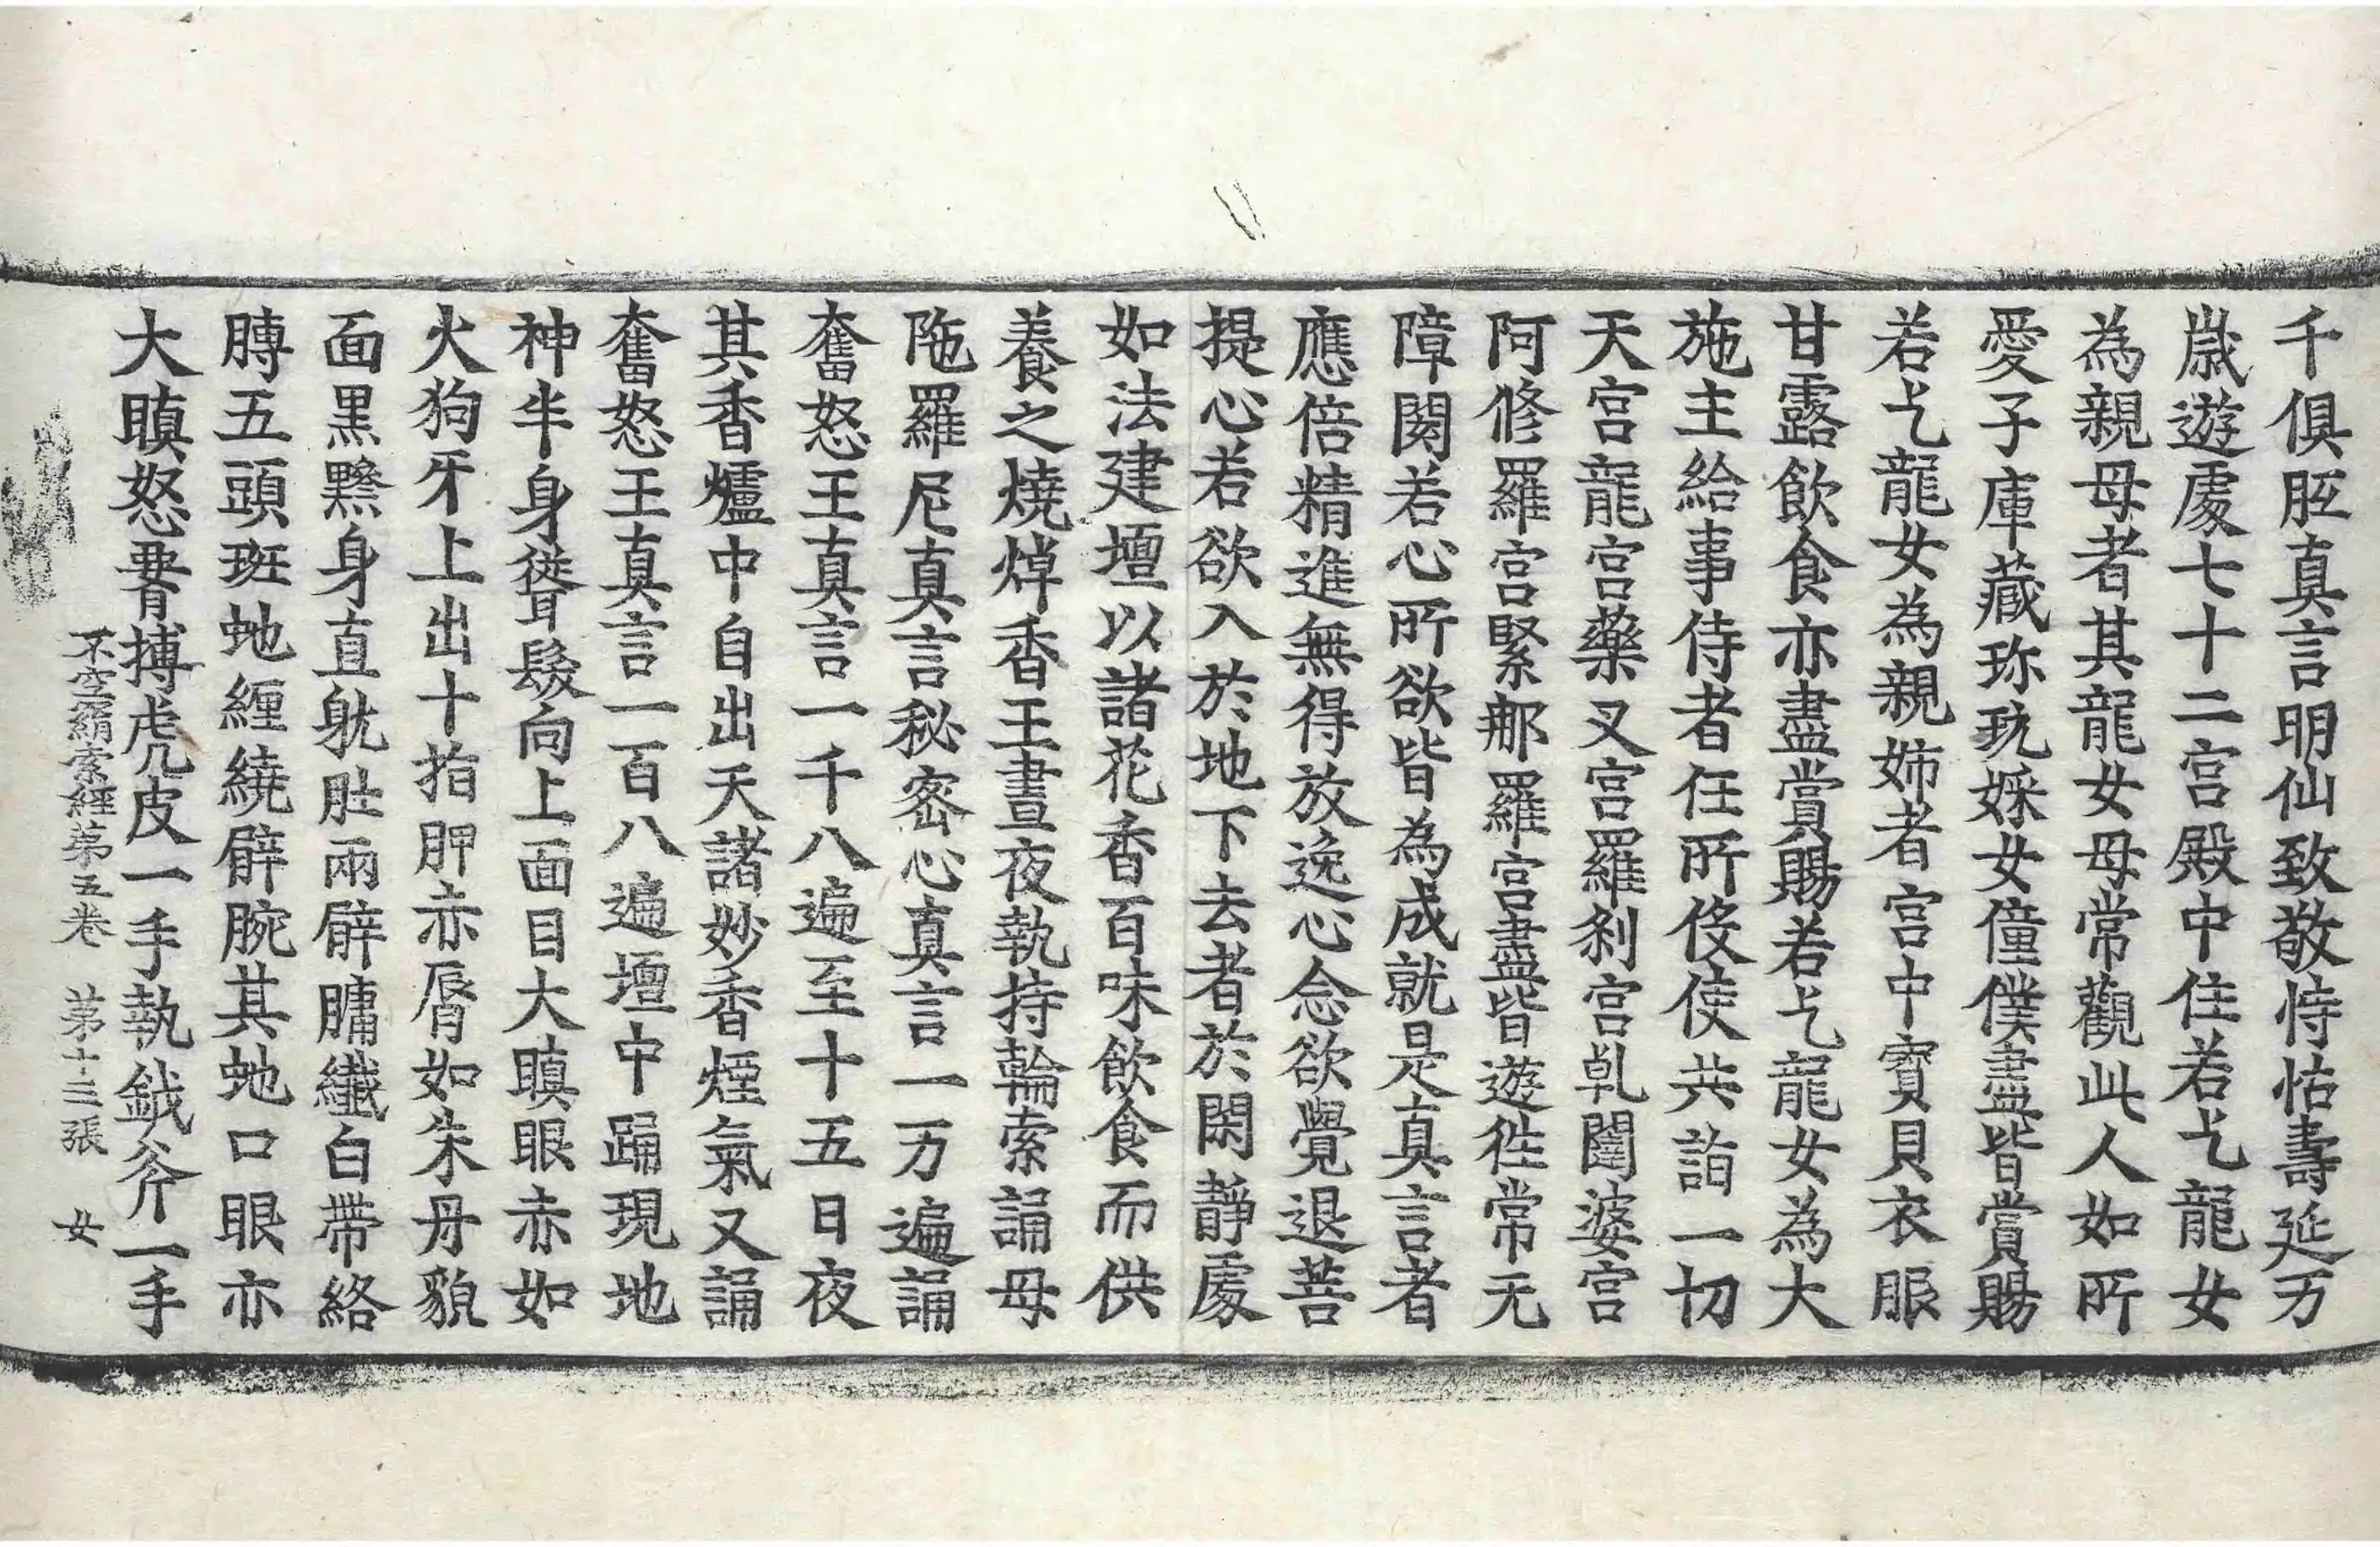 千俱胝真言明仙致敬恃怙壽延万
歲遊處七十二宮殿中住若乞龍女
為親母者其龍女母常觀此人如所
愛子庫藏珎玩婇女僮僕盡皆賞賜
若乞龍女為親姊者宮中寶貝衣服
甘露飲食亦盡賞賜若乞龍女為大
施主給事侍者任所伇使共詣一切
天宮龍宮藥叉宮羅剎宮乹闥婆宮
阿修羅宮緊那羅宮盡皆遊徃常无
障閡若心所欲皆為成就是真言者
應倍精進無得放逸心念欲覺退菩
提心若欲入於地下去者於閑靜處
如法建壇以諸花香百味飲食而供
養之燒焯香王晝夜執持輪索誦母
陁羅尼真言秘密心真言一万遍誦
奮怒王真言一千八遍至十五日夜
其香爐中自出天諸妙香煙氣又誦
奮怒王真言一百八遍壇中踊現地
神半身聳髮向上面目大瞋眼赤如
火狗牙上出十指胛赤脣如朱丹貌
面黑黪身直躭肚兩臂𦟛纖白帶絡
膊五頭斑虵纏繞臂腕其虵口眼亦
大瞋怒䙅搏虎皮一手執鉞斧一手
不空羂索經第五卷　第十三張　女